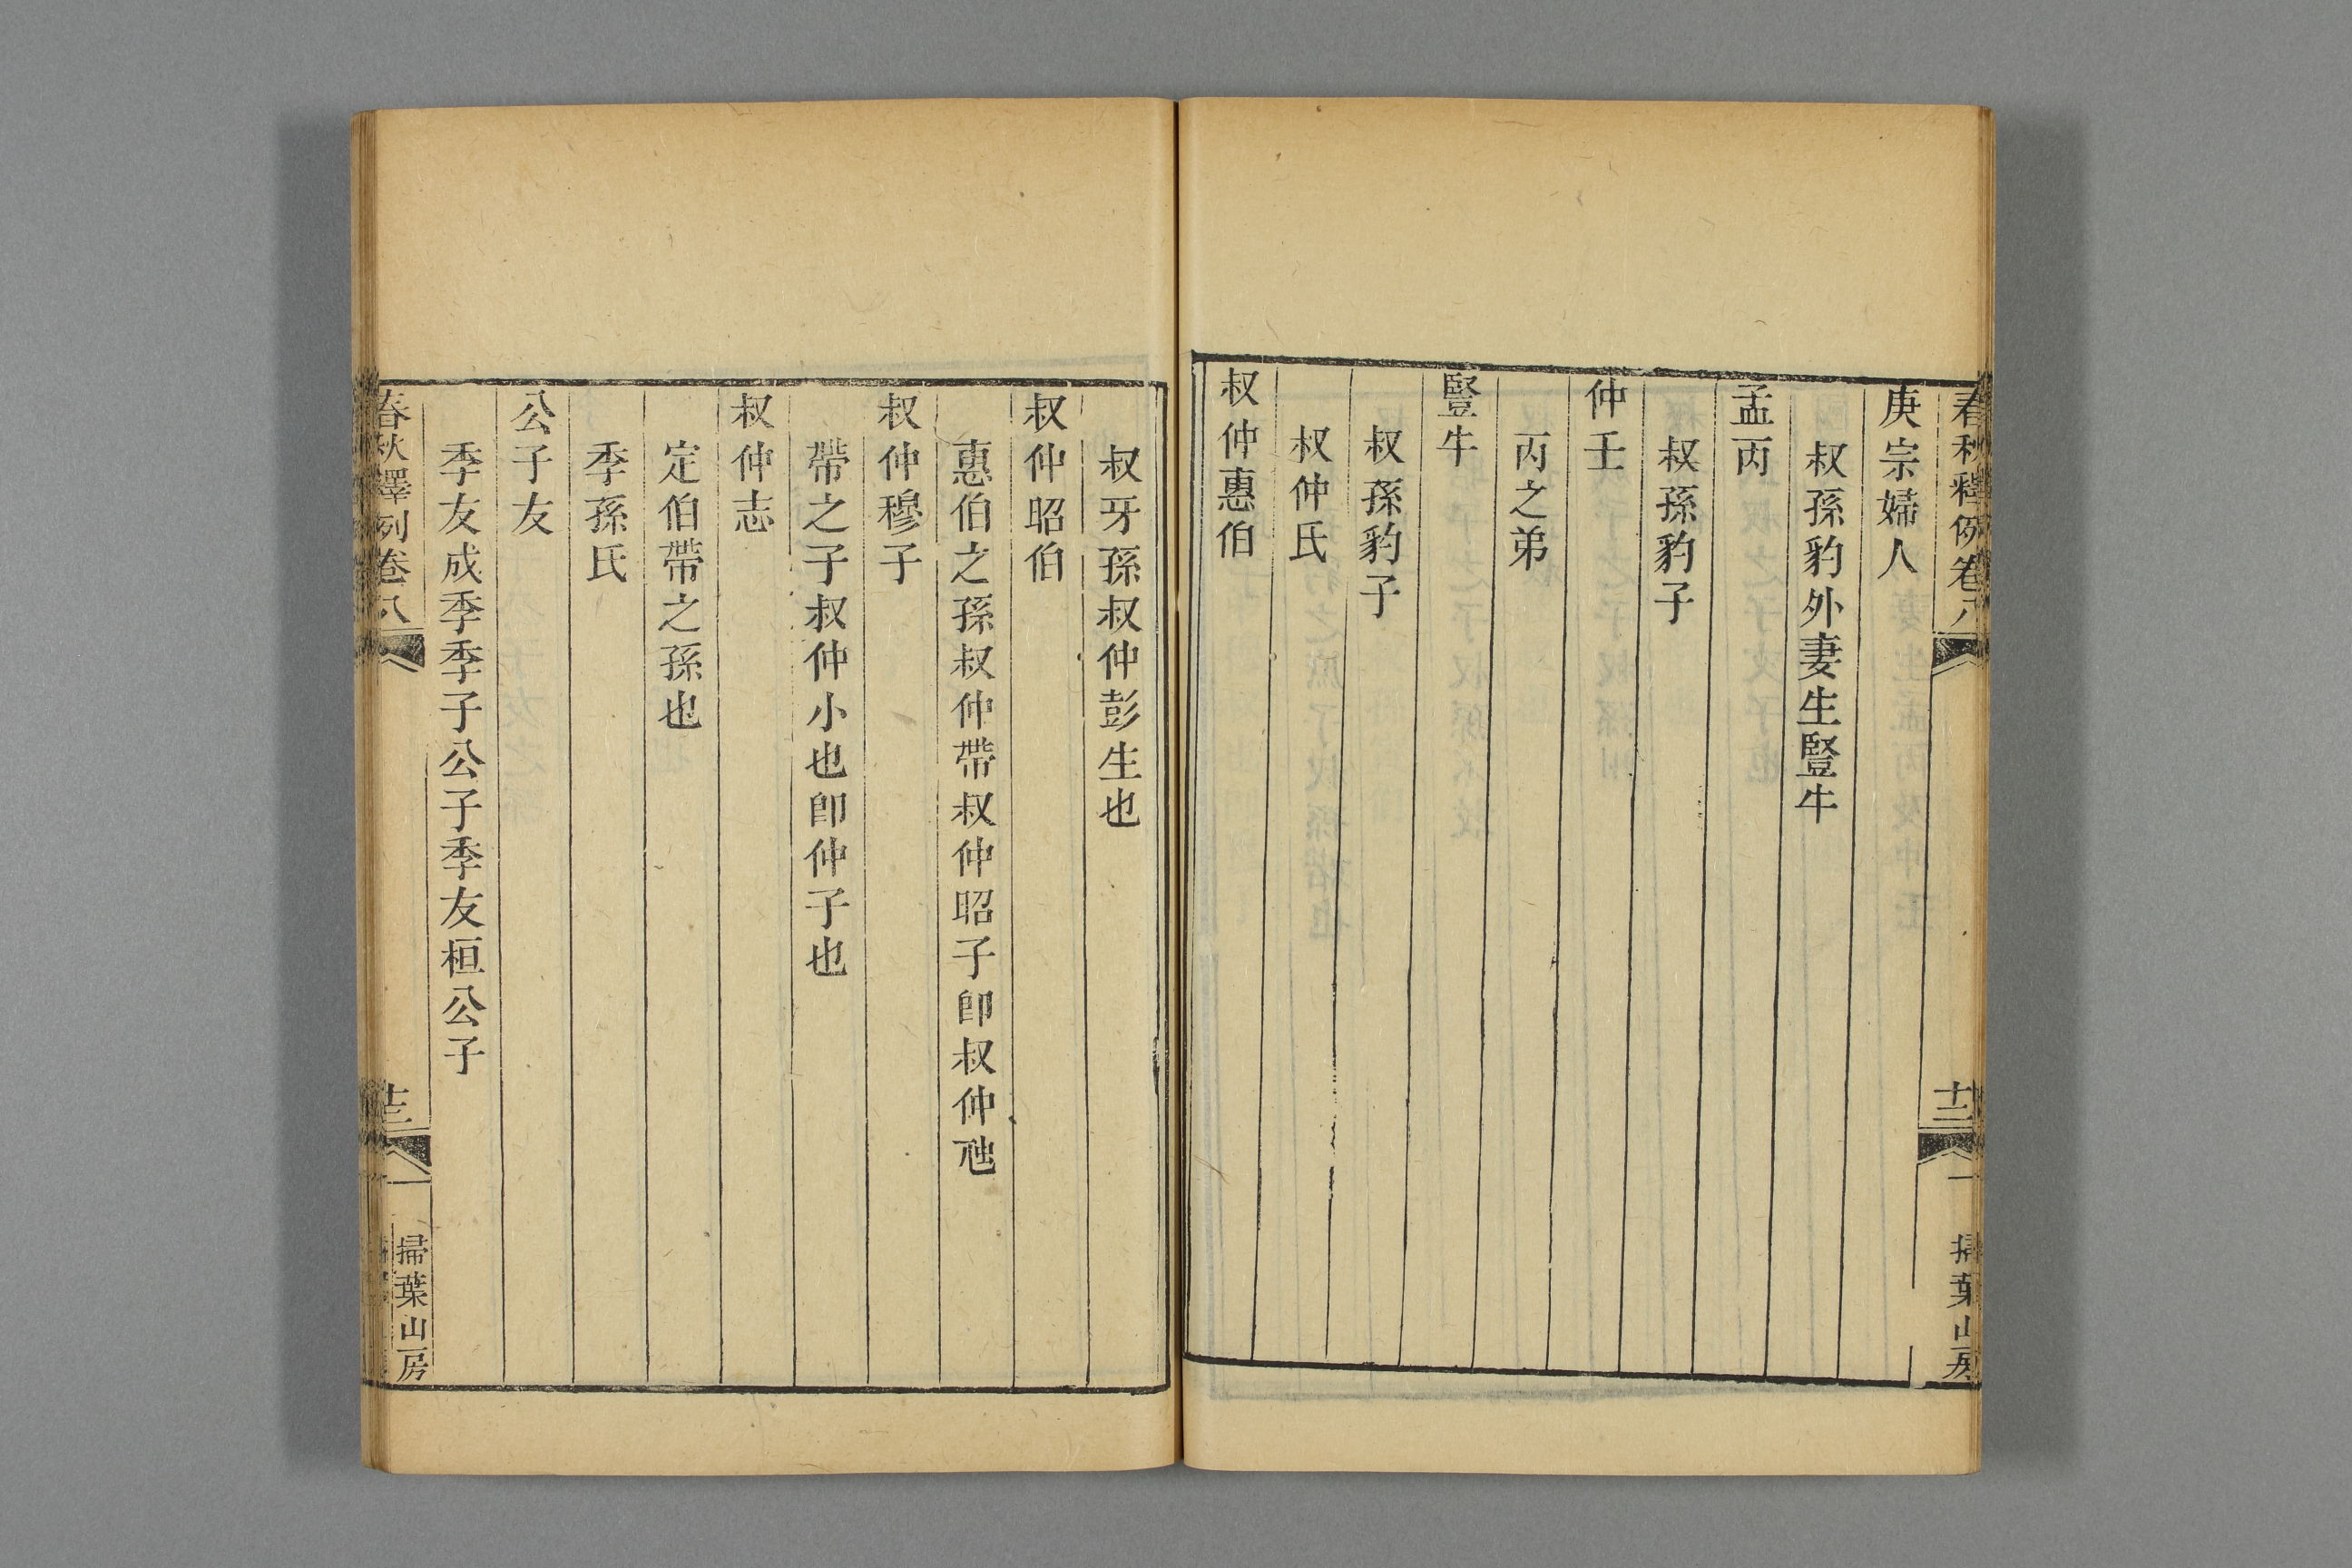 春秋釋例卷八
十二
掃葉山房
庚宗婦人
叔孫豹外妻生豎牛
孟丙
叔孫豹子
仲壬
丙之弟
豎牛
叔孫豹子
叔仲氏
叔仲惠伯
叔牙孫叔仲彭生也
叔仲昭伯
惠伯之孫叔仲帶叔仲昭子卽叔仲虺
叔仲穆子
帶之子叔仲小也卽仲子也
叔仲志
定伯帶之孫也
季孫氏
公子友
季友成季季子公子季友桓公子
春秋釋例卷八
十三
掃葉山房